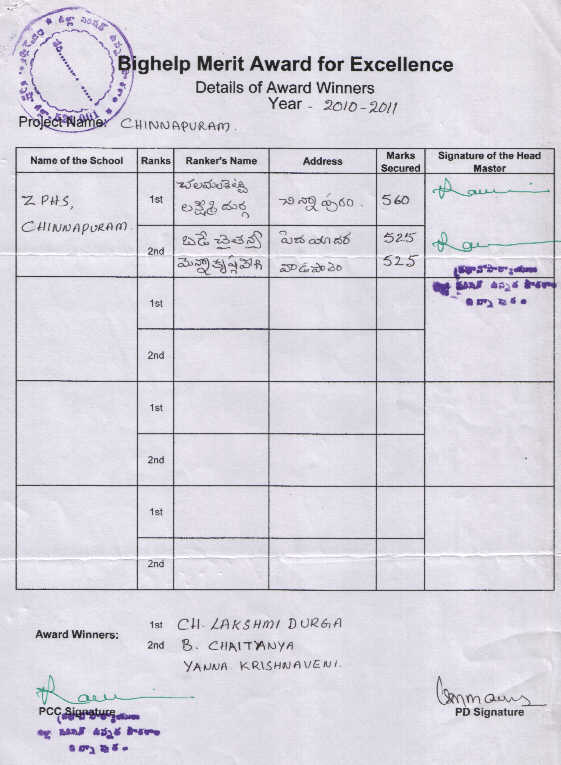 Bighelp Merit Award for Excellence
Details of Award Winners
Year - 2010-2011
Project Name: CHINNAPURAM.
Name of the School Ranks Ranker's Name Address Marks Secured Signature of the Head Master
Z PHS, CHINNAPURAM.
1st చలమలశెట్టి లక్ష్మీ దుర్గ చిన్నాపురం. 560
2nd బడే చైతన్య పెదయాదర 525
కృష్ణవేణి 525
1st
2nd
1st
2nd
1st
2nd
Award Winners: 1st CH. LAKSHMI DURGA
2nd B. CHAITANYA
YANNA KRISHNAVENI.
PCC Signature PD Signature